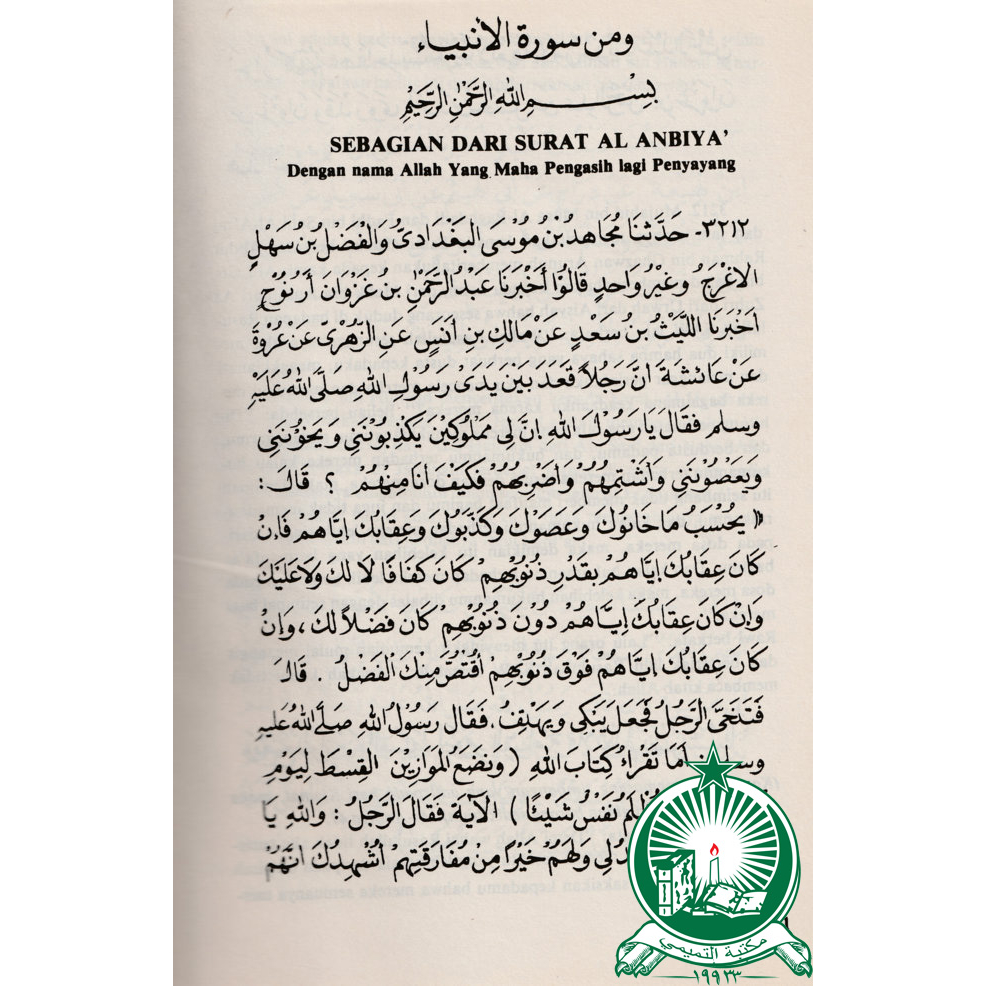 ومن سورة الأنبياء
بِسْــــمِ اللهِ الرَّحْمٰنِ الرَّحِيْمِ
SEBAGIAN DARI SURAT AL ANBIYA'
Dengan nama Allah Yang Maha Pengasih lagi Penyayang
٣٢١٢- حَدَّثَنَا مُجَاهِدُ بْنُ مُوْسَى البَغْدَادِىُّ وَالْفَضْلُ بْنُ سَهْلٍ
الاعْرَجُ وَغَيْرُ وَاحِدٍ قَالُوْا أَخْبَرَنَا عَبْدُ الرَّحْمٰنِ بنُ غَزْوَانَ أَبُوْنُوْحٍ
أَخْبَرَنَا اللَّيْثُ بنُ سَعْدٍ عَنْ مَالِكِ بنِ أَنَسٍ عَنِ الزُّهْرِىِّ عَنْ عُرْوَةَ
عَنْ عَائِشَةَ انَّ رَجُلاً قَعَدَ بَيْنَ يَدَىْ رَسُوْلِ اللهِ صَلَّى اللهُ عَلَيْهِ
وسلم فقَالَ يَا رَسُوْلَ اللهِ انَّ لِى مَمْلُوْكَيْنَ يَكْذِبُوْنَنِى وَيَخُوْنُنَنِى
وَيَعْصُوْنَنِى وَأَشْتِمُهُمْ وَأَضْرِبُهُمْ فَكَيْفَ أَنَا مِنْهُمْ ؟ قَالَ :
« يُحْسَبُ مَا خَانُوْكَ وَعَصَوْكَ وَكَذَّبُوْكَ وَعِقَابُكَ ايَّاهُمْ فَاِنْ
كَانَ عِقَابُكَ ايَّاهُمْ بِقَدْرِ ذُنُوْبِهِمْ كَانَ كَفَافًا لاَ لَكَ وَلاَ عَلَيْكَ
وَاِنْ كَانَ عِقَابُكَ اِيَّاهُمْ دُوْنَ ذُنُوْبِهِمْ كَانَ فَضْلاً لَكَ ، وَاِنْ
كَانَ عِقَابُكَ ايَّاهُمْ فَوْقَ ذُنُوْبِهِمْ أقْتُصَّ مِنْكَ الْفَضْلُ . قَالَ
فَتَنَحَّى الرَّجُلُ فَجَعَلَ يَبْكِى وَيَهْتِفُ ، فَقَال رَسُوْلُ اللهِ صَلَّى اللهُ عَلَيْهِ
وسلم : أَمَا تَقْرَاءُ كِتَابَ اللهِ ( وَنَضَعُ الْمَوَازِيْنَ القِسْطَ لِيَوْمِ
نَفْسٌ شَيْئًا ) الآيَةَ فَقَالَ الرَّجُلُ : وَاللهِ يَا
لِى وَلَهُمْ خَيْرًا مِنْ مُفَارَقَتِهِمْ أُشْهِدُكَ انَّهُمْ
مكتبة التميمي